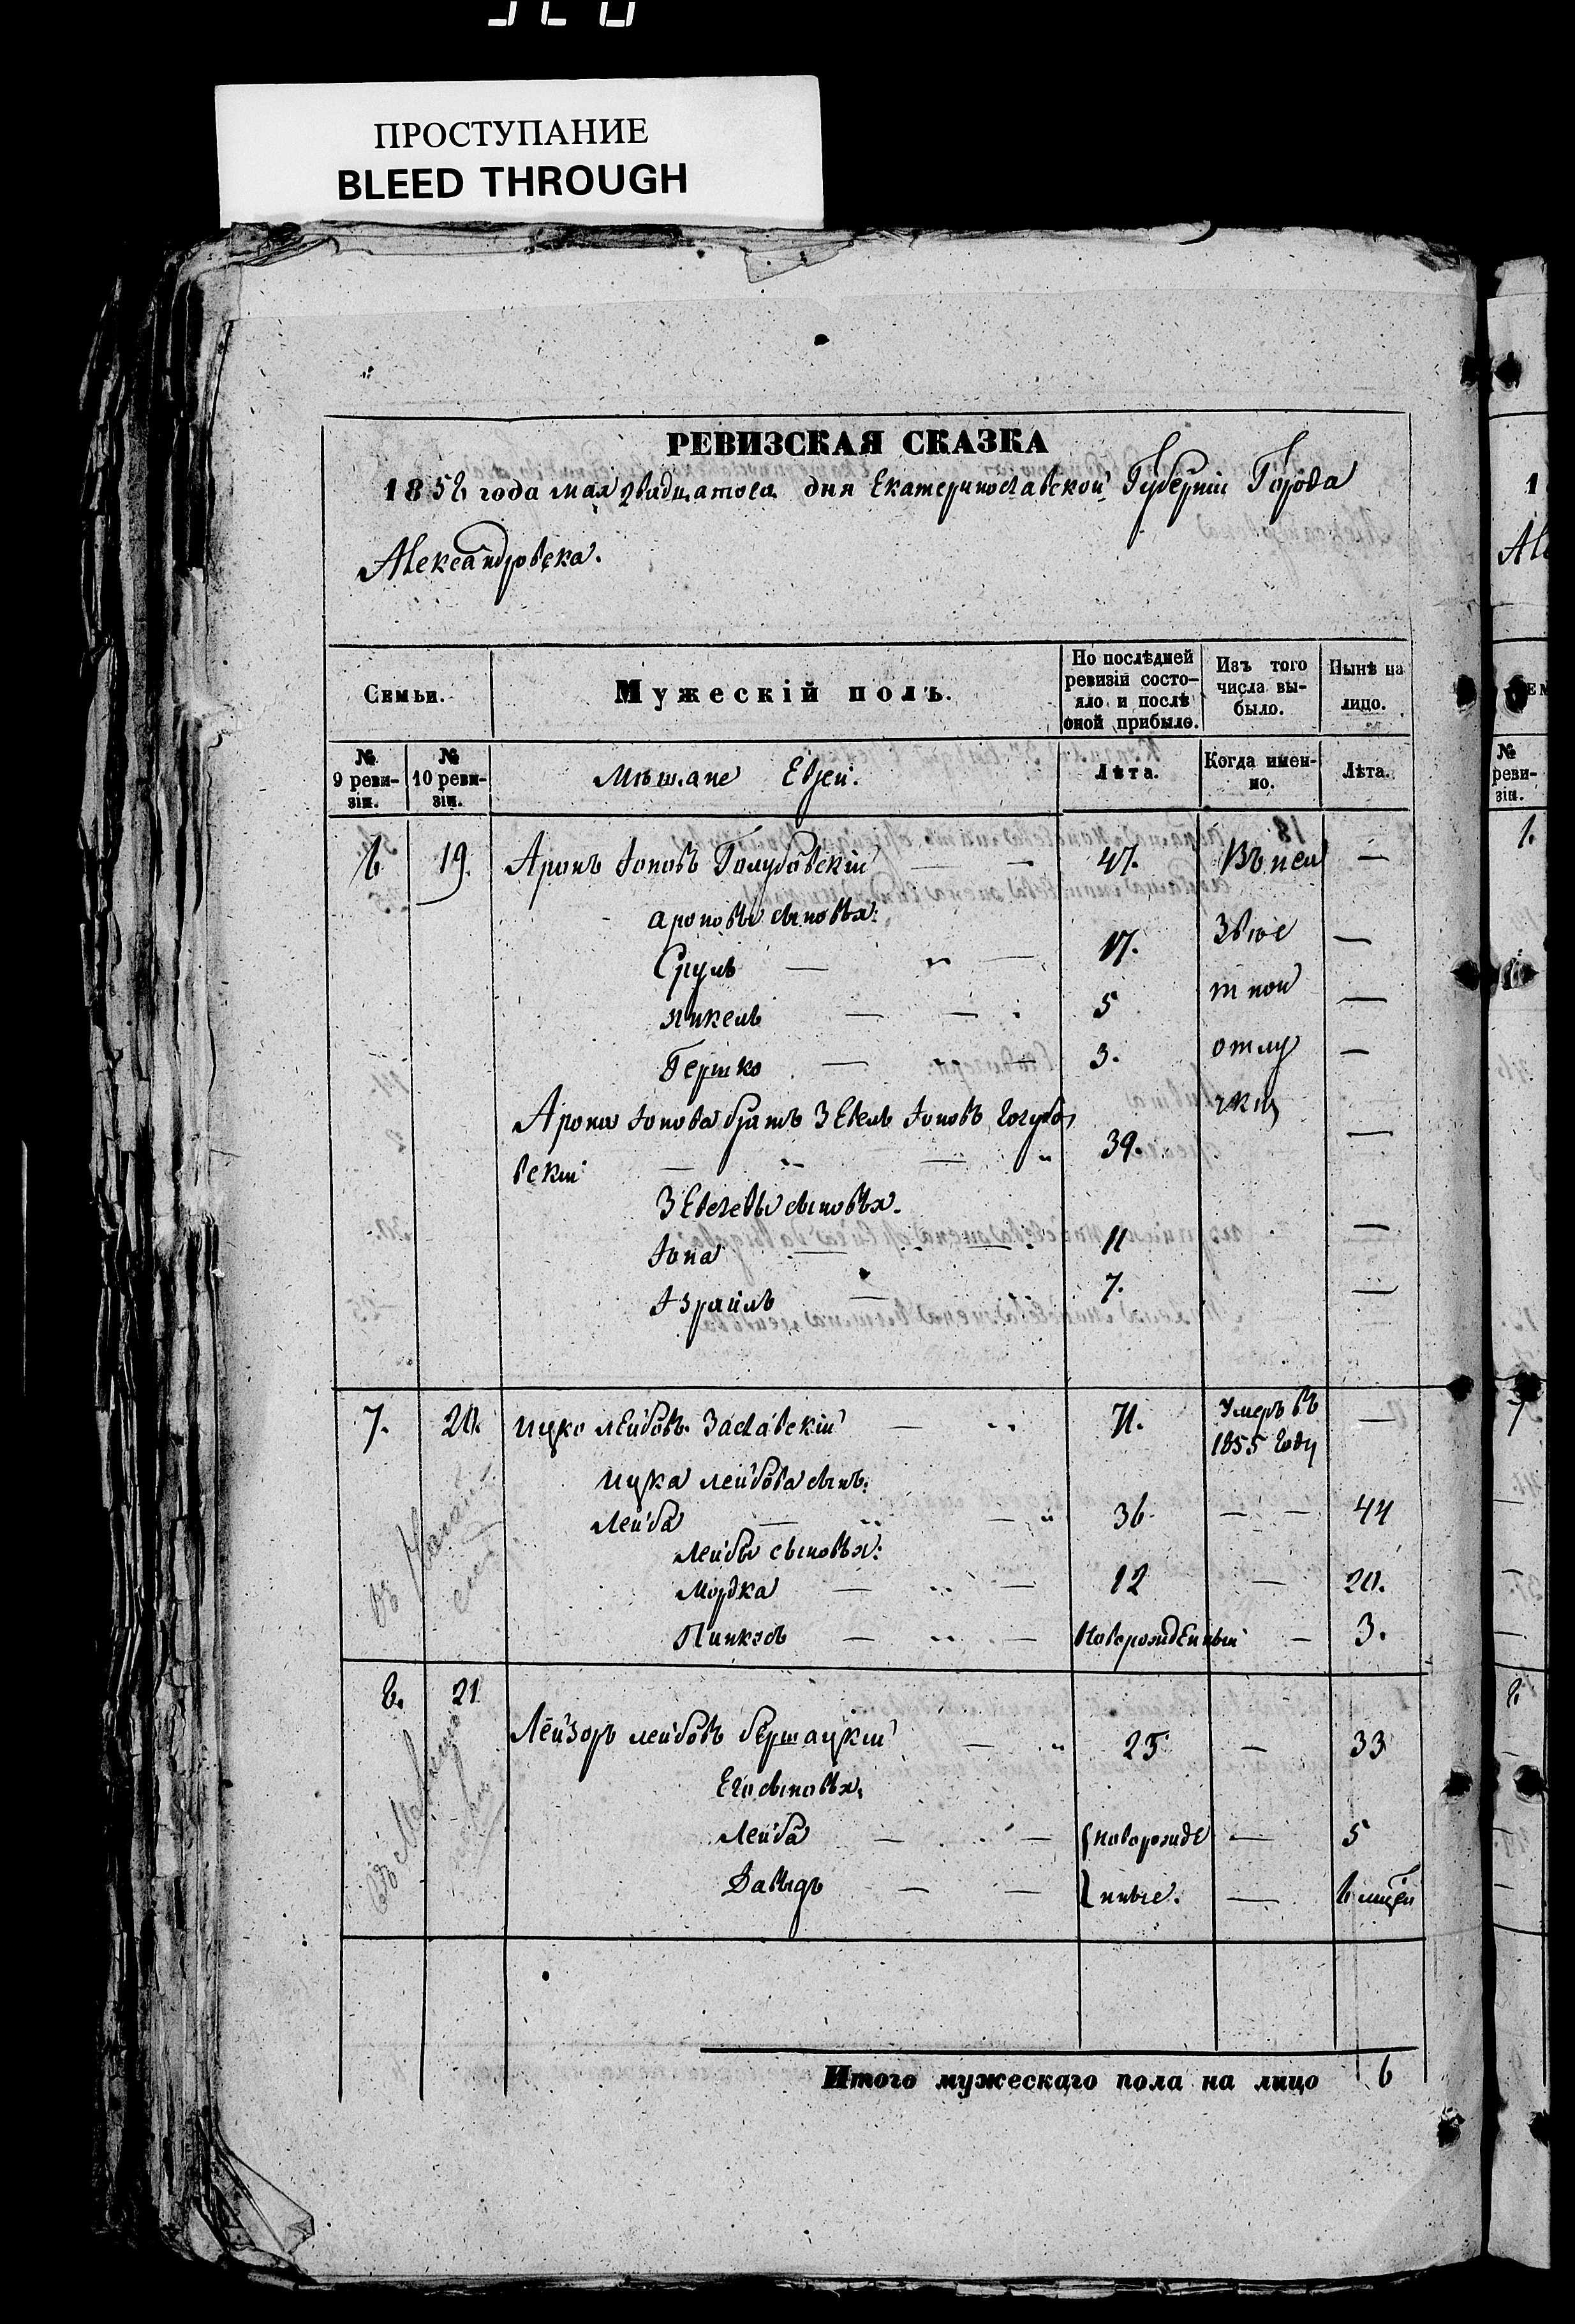 ПРОСТУПАНИЕ
BLEED THROUGH
РЕВИЗСКАЯ СКАЗКА
1858 года мая двадцатого дня Екатеринославской Губерніи Города
Александровска.
Семьи.
Мужескій полъ.
По послѣдней ревизіи состо-
яло и послѣ
оной прибыло.
Изъ того
числа вы-
было.
Нынѣ на
лицо.
№
9 реви-
зіи.
№
10 реви-
зіи.
Мѣщане Евреи.
Лѣта.
Когда имен-
но.
Лѣта.
6 19. Аронъ Іоновъ Голубовскій — 47. Въ неи —
Ароновы сыновья:
Сруль — " — 17. звѣс —
Янкель — — 5 тной —
Гершко — — 3. отлу —
Арона Іонова братъ Зевель Іоновъ Голубо чки
вскій — " — " 39. —
Зевелевы сыновья.
Іона — " — 11 —
Израиль — 7. —
7. 20. Ицко Лейбовъ Заславскій — " 71. Умеръ въ —
1855 году
Ицка Лейбова сынъ:
Лейба — " — " 36. — — 44
Лейбы сыновья:
Мордка — " — 12 — 20.
Пинхас — " — Новорожденный — 3.
8. 21 Лейзоръ Лейбовъ Бершацкій — " 25 — 33
Его сыновья,
Лейба — " — новорожде — 5
Давыдъ — — нные. —
Итого мужескаго пола на лицо 6